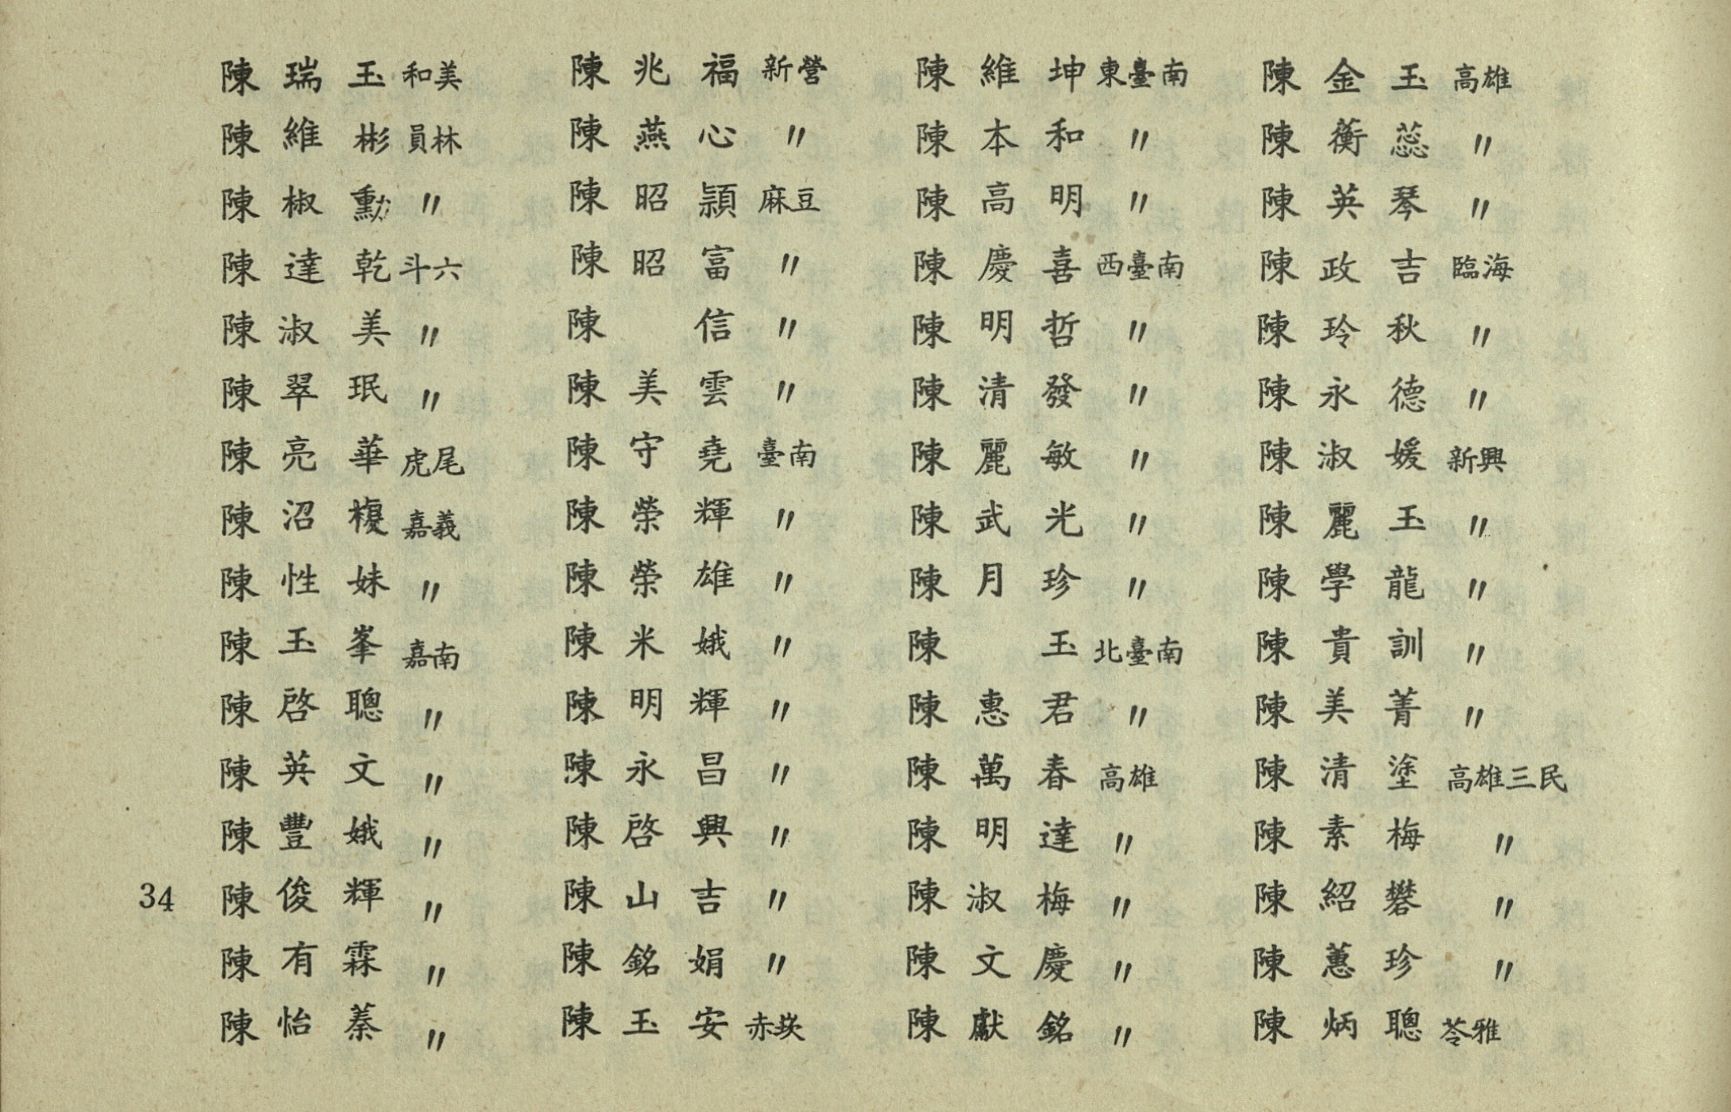 陳瑞玉 和美
陳維彬 員林
陳椒勳 〃
陳達乾 斗六
陳淑美 〃
陳翠珉 〃
陳亮華 虎尾
陳沼榎 嘉義
陳性妹 〃
陳玉峯 嘉南
陳啓聰 〃
陳英文 〃
陳豐娥 〃
陳俊輝 〃
陳有霖 〃
陳怡蓁 〃
陳兆福 新營
陳燕心 〃
陳昭頴 麻豆
陳昭富 〃
陳 信 〃
陳美雲 〃
陳守堯 臺南
陳榮輝 〃
陳榮雄 〃
陳米娥 〃
陳明輝 〃
陳永昌 〃
陳啓興 〃
陳山吉 〃
陳銘娟 〃
陳玉安 赤崁
陳維坤 東臺南
陳本和 〃
陳高明 〃
陳慶喜 西臺南
陳明哲 〃
陳清發 〃
陳麗敏 〃
陳武光 〃
陳月珍 〃
陳 玉 北臺南
陳惠君 〃
陳萬春 高雄
陳明達 〃
陳淑梅 〃
陳文慶 〃
陳獻銘 〃
陳金玉 高雄
陳蘅蕊 〃
陳英琴 〃
陳政吉 臨海
陳玲秋 〃
陳永德 〃
陳淑媛 新興
陳麗玉 〃
陳學龍 〃
陳貴訓 〃
陳美菁 〃
陳清塗 高雄三民
陳素梅 〃
陳紹礬 〃
陳蕙珍 〃
陳炳聰 苓雅
34